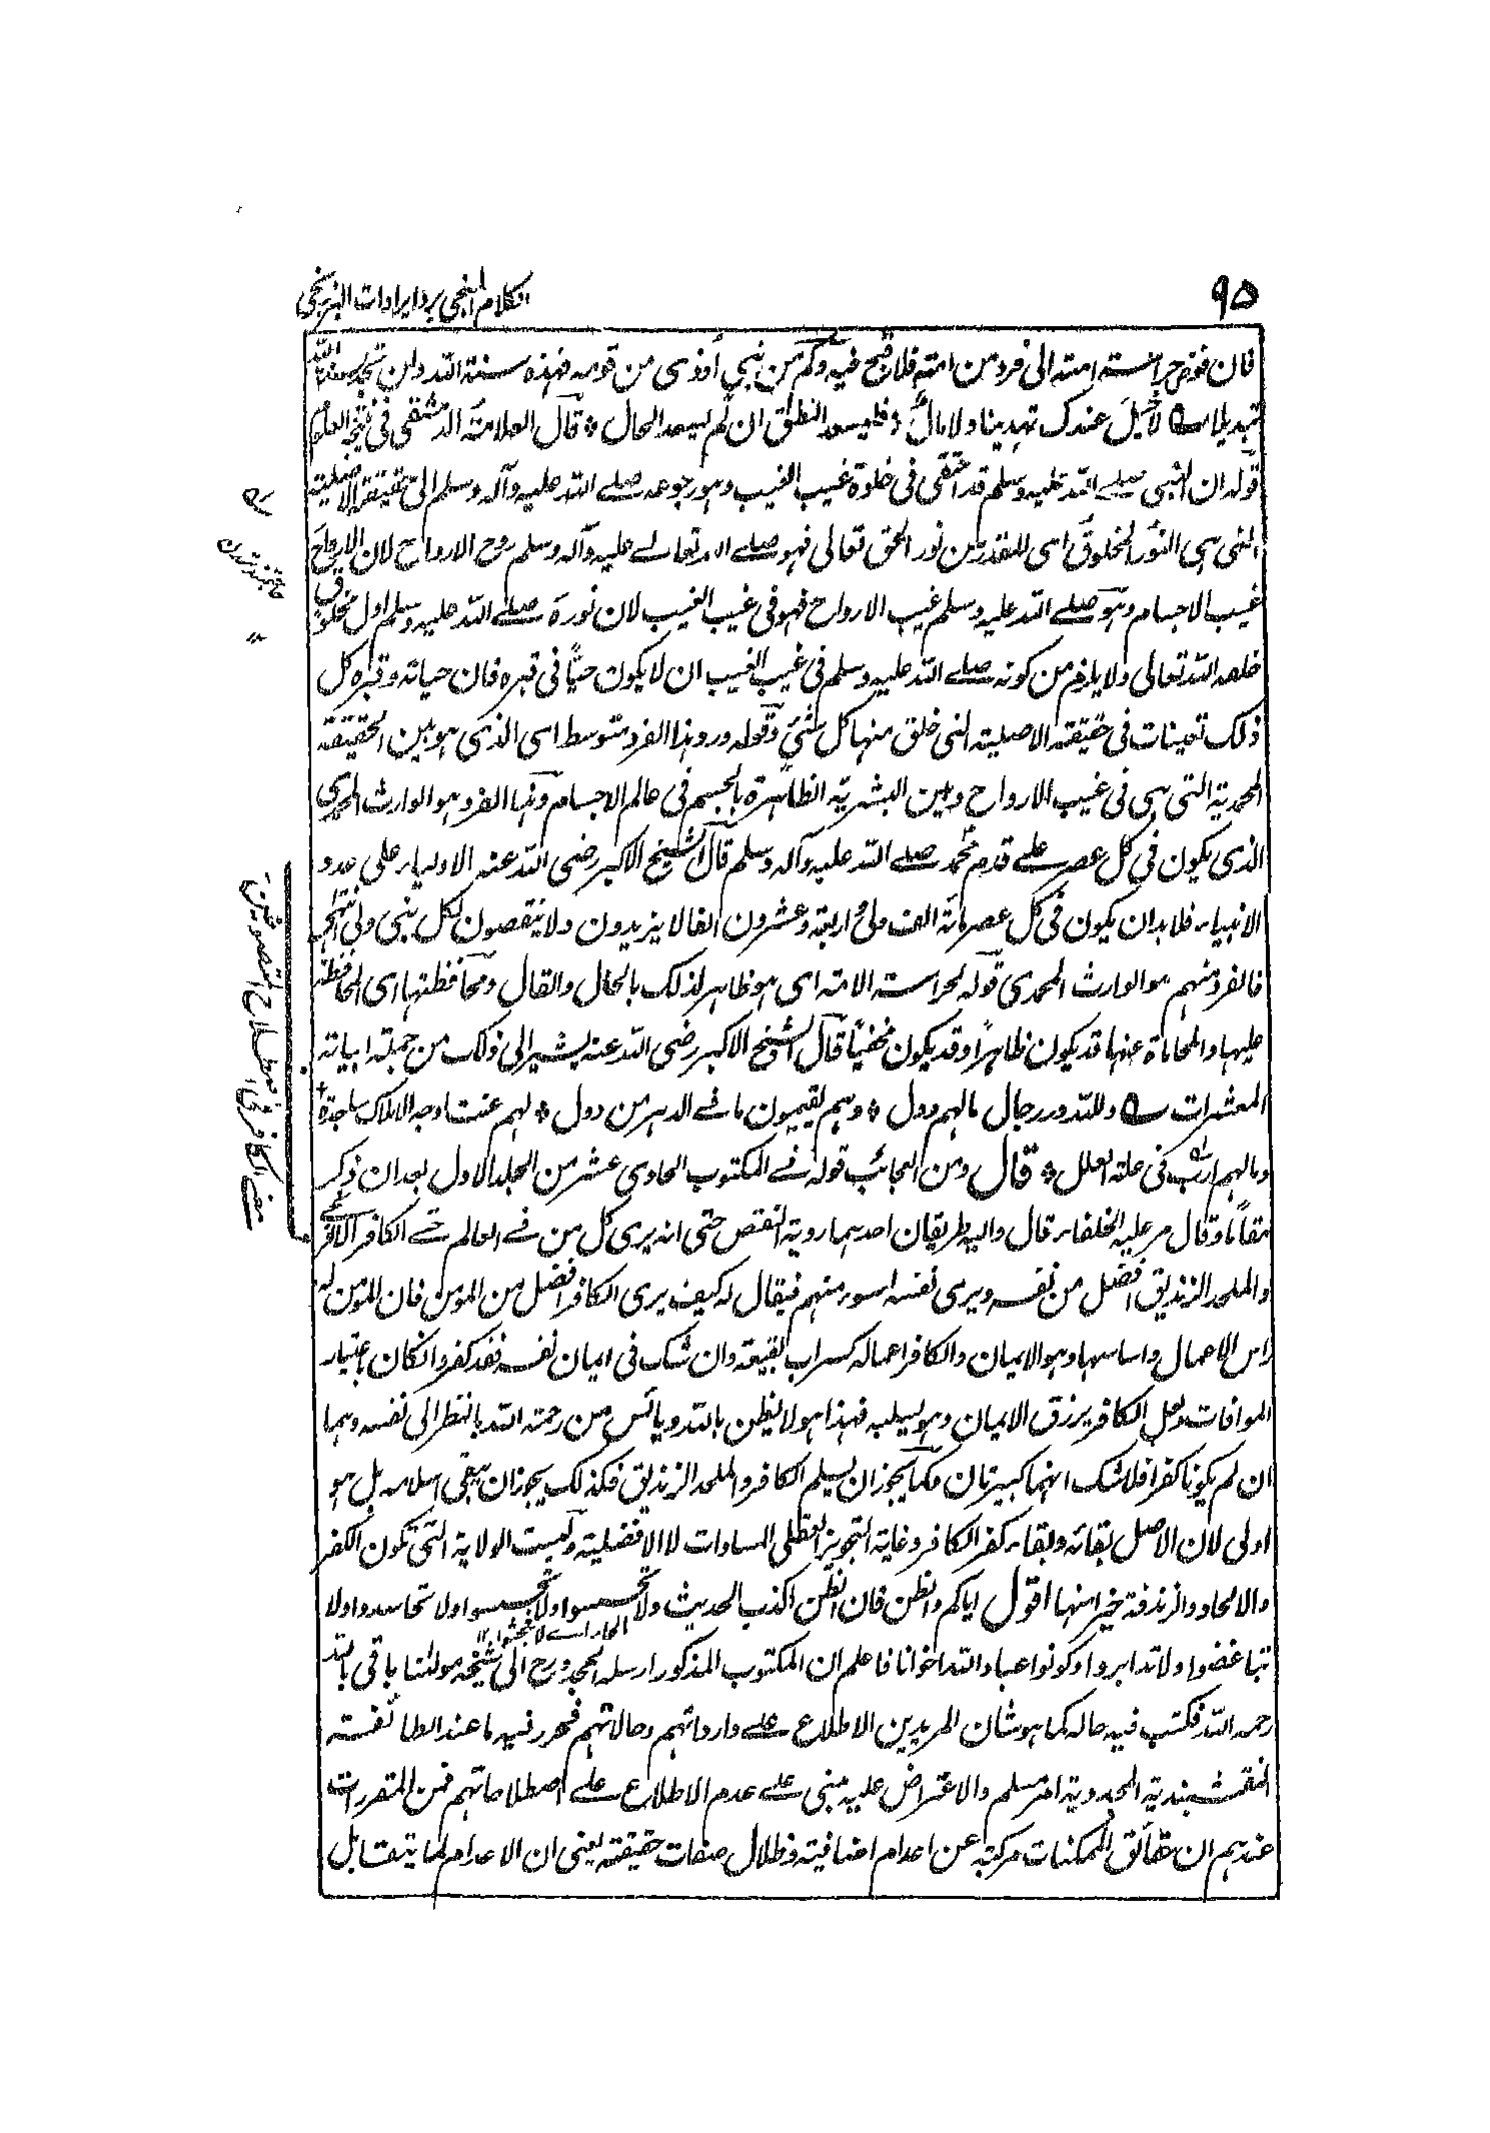 ٩٥
الكلام المنجي برد ايرادات البرزنجي
فان فوض حراسته امته الى فرد من امته فلا قبح فيه وكم من نبي أوذى من قومه فهذه سنة الله ولن تجد لسنة الله
تبديلا لا خيل عندك تهديها ولا مال فليسعد النطق ان لم يسعد الحال قال العلامة الدمشقي في نتيجة العلوم
قوله ان النبي صلى الله عليه وسلم قد اختفى في خلوة غيب الغيب وهو رجوعه صلى الله عليه وآله وسلم الى حقيقته الاصلية
التي هي النور المخلوق اى المقدر من نور الحق تعالى فهو صلى الله تعالى عليه وآله وسلم روح الارواح لان الارواح
غيب الاجسام وهو صلى الله عليه وسلم غيب الارواح فهو في غيب الغيب لان نوره صلى الله عليه وسلم اول مخلوق
خلقه الله تعالى ولا يلزم من كونه صلى الله عليه وسلم في غيب الغيب ان لا يكون حيًّا في قبره فان حياته وقبره كل
ذلك تعينات في حقيقته الاصلية التي خلق منها كل شئ وقوله ورد هذا الفرد متوسط اى الذى هو بين الحقيقة
المحمدية التي هي في غيب الارواح وبين البشرية الظاهرة بالجسم في عالم الاجسام وهذا الفرد هو الوارث المحمدى
الذى يكون في كل عصر على قدم محمد صلى الله عليه وآله وسلم قال الشيخ الاكبر رضى الله عنه الاولياء على عدد
الانبياء فلا بد ان يكون في كل عصر مائة الف ولى واربعة وعشرون الفا لا يزيدون ولا ينقصون لكل نبي ولى انتهى
فالفرد منهم هو الوارث المحمدى قوله لحراسته الامته اى هو ظاهر لذلك بالحال والقال ومحافظتها اى المحافظة
عليها والمحاماة عنها قد يكون ظاهراً وقد يكون مخفيًا قال الشيخ الاكبر رضى الله عنه يشير الى ذلك من جملة ابياته
المعشرات ولله در رجال مالهم دول وهم يقيمون ما في الدهر من دول لهم عنت اوجه الاملاك ساجدة
وما لهم ارب في علة العلل قال ومن العجائب قوله في المكتوب الحادى عشر من الجلد الاول بعد ان ذكر
مقامًا وقال مر عليه الخلفاء قال واليه طريقان احدهما روية النقص حتى انه يرى كل من في العالم حتى الكافر الافرنجى
والملحد الزنديق افضل من نفسه ويرى نفسه اسوء منهم فيقال له كيف يرى الكافر افضل من المومن فان المومن له
راس الاعمال واساسها وهو الايمان والكافر اعماله كسراب بقيعة وان شك في ايمان نفسه فقد كفر وانكان باعتبار
الموافات ولعل الكافر يرزق الايمان وهو يسلبه فهذا هو لا يظن بالله ويائس من رحمة الله بالنظر الى نفسه وهما
ان لم يكونا كفرا فلا شك انهما كبيرتان وكما يجوز ان يسلم الكافر والملحد الزنديق فكذلك يجوز ان يبقى اسلامه بل هو
اولى لان الاصل بقائه وبقاء كفر الكافر وغاية التجويز العقلى المساوات لا الافضلية وليست الولاية التي تكون الكفر
والالحاد والزندقة خير منها اقول اياكم والظن فان الظن اكذب الحديث ولا تحسسوا ولا تجسسوا ولا تحاسدوا ولا
تباغضوا ولا تدابروا وكونوا عباد الله اخوانا فاعلم ان المكتوب المذكور ارسله المجدد رح الى شيخه مولنا باقى بالله
رحمه الله فكتب فيه حاله كما هو شان المريدين الاطلاع على وارداتهم وحالاتهم فحرر فيه ما عند الطائفته
النقشبندية المجددية امر مسلم والاعتراض عليه مبنى على عدم الاطلاع على اصطلاحاتهم فمن المقررات
عندهم ان حقائق الممكنات مركبة عن اعدام اضافيته وظلال صفات حقيقته يعني ان الاعدام لما يتقابل
معنى الكافر في اصطلاح المتصوفين